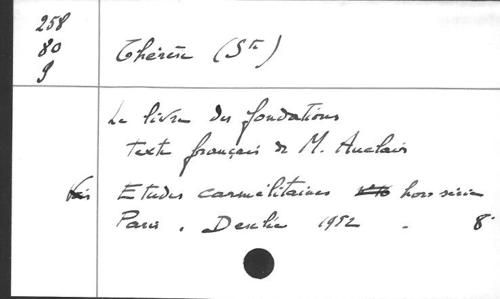 258
80
9
Thérèse (Ste)
Le livre des fondations
texte français de M. Auclair
Etudes carmélitaines hors série
Paris. Desclée 1952. 8°